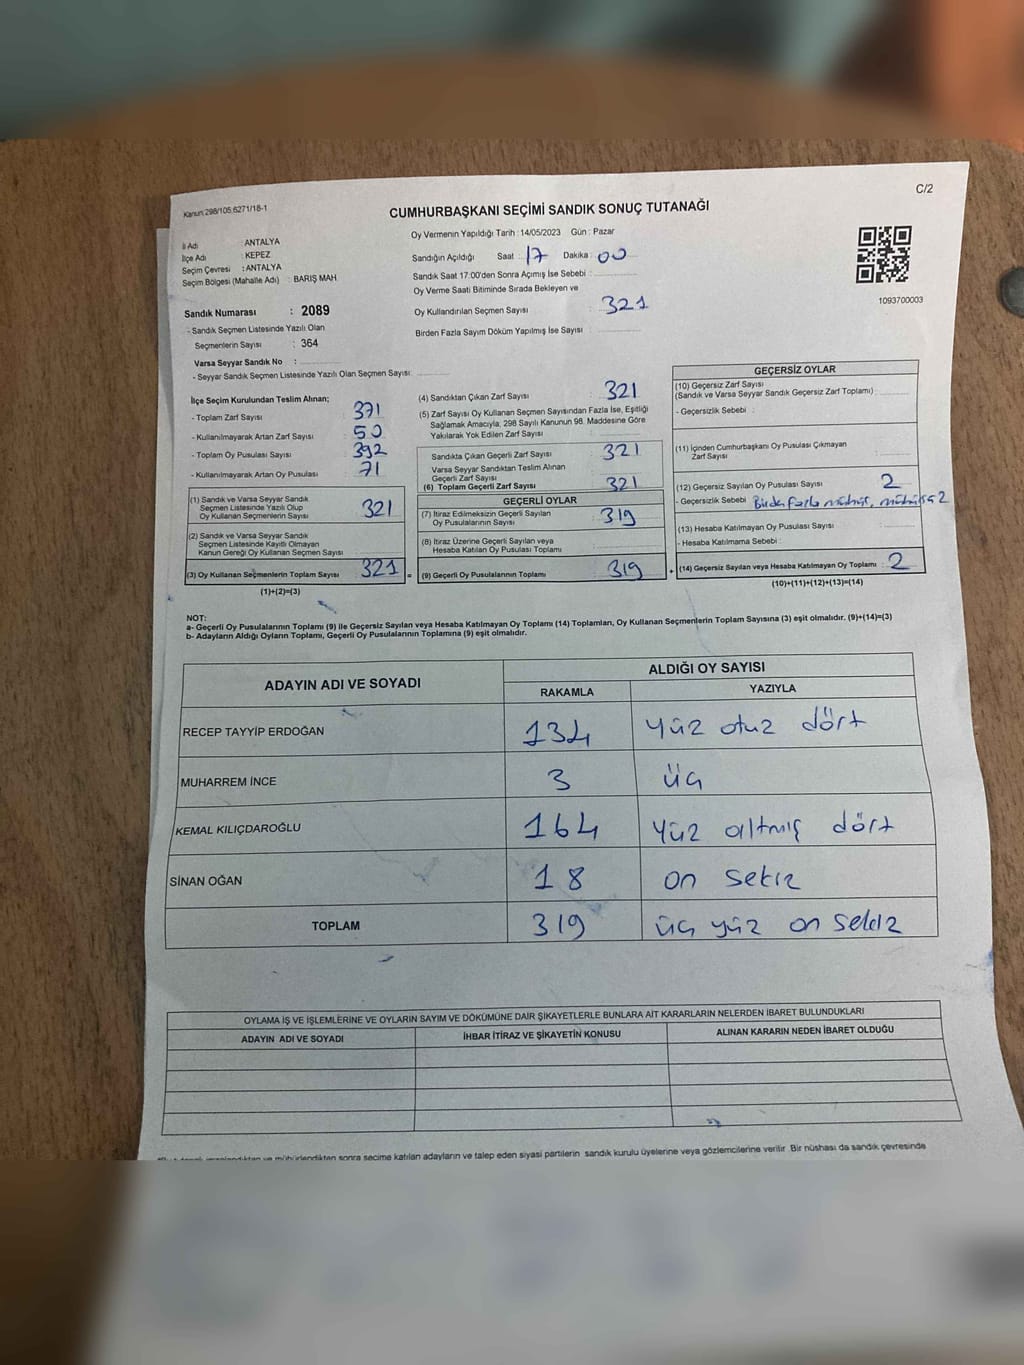 C/2
Kanun:298/105,6271/18-1
CUMHURBAŞKANI SEÇİMİ SANDIK SONUÇ TUTANAĞI
İl Adı : ANTALYA
İlçe Adı : KEPEZ
Seçim Çevresi : ANTALYA
Seçim Bölgesi (Mahalle Adı) : BARIŞ MAH.
Oy Vermenin Yapıldığı Tarih : 14/05/2023 Gün : Pazar
Sandığın Açıldığı Saat : 17 Dakika : 00
Sandık Saat 17:00'den Sonra Açımış İse Sebebi :
Oy Verme Saati Bitiminde Sırada Bekleyen ve
Oy Kullandırılan Seçmen Sayısı : 321
Birden Fazla Sayım Döküm Yapılmış İse Sayısı :
1093700003
Sandık Numarası : 2089
- Sandık Seçmen Listesinde Yazılı Olan
Seçmenlerin Sayısı : 364
Varsa Seyyar Sandık No :
- Seyyar Sandık Seçmen Listesinde Yazılı Olan Seçmen Sayısı:
İlçe Seçim Kurulundan Teslim Alınan;
- Toplam Zarf Sayısı 371
- Kullanılmayarak Artan Zarf Sayısı 50
- Toplam Oy Pusulası Sayısı 392
- Kullanılmayarak Artan Oy Pusulası 71
(1) Sandık ve Varsa Seyyar Sandık
Seçmen Listesinde Yazılı Olup
Oy Kullanan Seçmenlerin Sayısı 321
(2) Sandık ve Varsa Seyyar Sandık
Seçmen Listesinde Kayıtlı Olmayan
Kanun Gereği Oy Kullanan Seçmen Sayısı
(3) Oy Kullanan Seçmenlerin Toplam Sayısı 321 =
(1)+(2)=(3)
(4) Sandıktan Çıkan Zarf Sayısı : 321
(5) Zarf Sayısı Oy Kullanan Seçmen Sayısından Fazla İse, Eşitliği
Sağlamak Amacıyla, 298 Sayılı Kanunun 98. Maddesine Göre
Yakılarak Yok Edilen Zarf Sayısı
Sandıkta Çıkan Geçerli Zarf Sayısı 321
Varsa Seyyar Sandıktan Teslim Alınan
Geçerli Zarf Sayısı
(6) Toplam Geçerli Zarf Sayısı 321
GEÇERLİ OYLAR
(7) İtiraz Edilmeksizin Geçerli Sayılan
Oy Pusulalarının Sayısı 319
(8) İtiraz Üzerine Geçerli Sayılan veya
Hesaba Katılan Oy Pusulası Toplamı
(9) Geçerli Oy Pusulalarının Toplamı 319 +
GEÇERSİZ OYLAR
(10) Geçersiz Zarf Sayısı
(Sandık ve Varsa Seyyar Sandık Geçersiz Zarf Toplamı) :
- Geçersizlik Sebebi :
(11) İçinden Cumhurbaşkanı Oy Pusulası Çıkmayan
Zarf Sayısı
(12) Geçersiz Sayılan Oy Pusulası Sayısı 2
- Geçersizlik Sebebi Birden fazla
(13) Hesaba Katılmayan Oy Pusulası Sayısı
- Hesaba Katılmama Sebebi :
(14) Geçersiz Sayılan veya Hesaba Katılmayan Oy Toplamı : 2
(10)+(11)+(12)+(13)=(14)
NOT:
a- Geçerli Oy Pusulalarının Toplamı (9) ile Geçersiz Sayılan veya Hesaba Katılmayan Oy Toplamı (14) Toplamları, Oy Kullanan Seçmenlerin Toplam Sayısına (3) eşit olmalıdır. (9)+(14)=(3)
b- Adayların Aldığı Oyların Toplamı, Geçerli Oy Pusulalarının Toplamına (9) eşit olmalıdır.
ADAYIN ADI VE SOYADI ALDIĞI OY SAYISI
RAKAMLA YAZIYLA
RECEP TAYYİP ERDOĞAN 134 yüz otuz dört
MUHARREM İNCE 3 üç
KEMAL KILIÇDAROĞLU 164 yüz altmış dört
SİNAN OĞAN 18 on sekiz
TOPLAM 319 üç yüz on sekiz
OYLAMA İŞ VE İŞLEMLERİNE VE OYLARIN SAYIM VE DÖKÜMÜNE DAİR ŞİKAYETLERLE BUNLARA AİT KARARLARIN NELERDEN İBARET BULUNDUKLARI
ADAYIN ADI VE SOYADI İHBAR İTİRAZ VE ŞİKAYETİN KONUSU ALINAN KARARIN NEDEN İBARET OLDUĞU
ve mühürlendikten sonra seçime katılan adayların ve talep eden siyasi partilerin sandık kurulu üyelerine veya gözlemcilerine verilir. Bir nüshası da sandık çevresinde